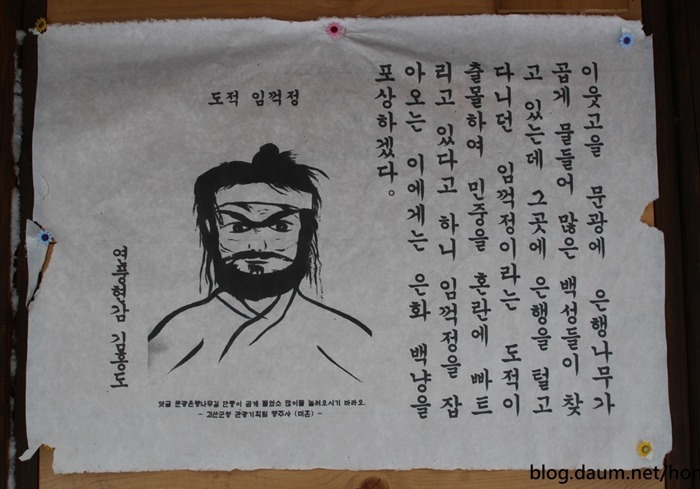 이웃고을 문광에 은행나무가
곱게 물들어 많은 백성들이 찾
고 있는데 그곳에 은행을 털고
다니던 임꺽정이라는 도적이
출몰하여 민중을 혼란에 빠트
리고 있다고 하니 임꺽정을 잡
아오는 이에게는 은화 백냥을
포상하겠다。
도적 임꺽정
연풍현감 김홍도
문광은행나무길 단풍이 곱게 들었소 많이들 놀러오시기 바라오.
- 괴산군청 관광기획팀 (미혼) -
blog.daum.net/hon